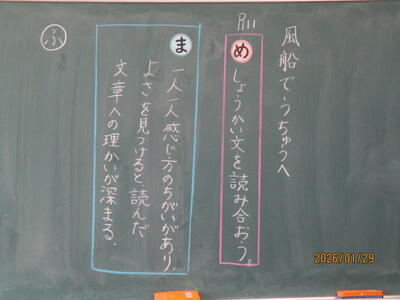 風船でうちゅうへ
P111
め しょうかい文を読み合おう。
ま 一人一人感じ方のちがいがあり、
よさを見つけると、読んだ
文章への理かいが深まる。
ふ
2026/01/29